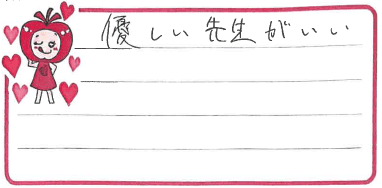 優しい先生がいい